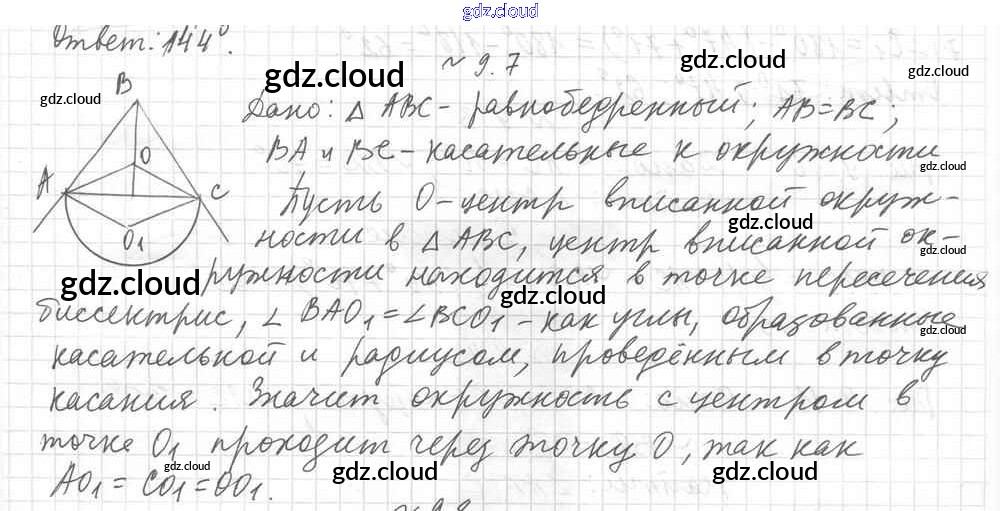 gdz.cloud
Ответ: 144°.
№ 9.7
gdz.cloud
gdz.cloud
gdz.cloud
B
Дано: △ ABC - равнобедренный; AB=BC;
O
BA и BC - касательные к окружности
gdz.cloud
gdz.cloud
A
C
Пусть O - центр вписанной окруж-
gdz.cloud
O1
ности в △ ABC, центр вписанной ок-
gdz.cloud
gdz.cloud
gdz.cloud
ружности находится в точке пересечения
биссектрис, ∠ BAO1 = ∠BCO1 - как углы, образованные
gdz.cloud
касательной и радиусом, проведённым в точку
касания. Значит окружность с центром в
точке O1 проходит через точку O, так как
gdz.cloud
gdz.cloud
gdz.cloud
gdz.cloud
AO1 = CO1 = OO1.